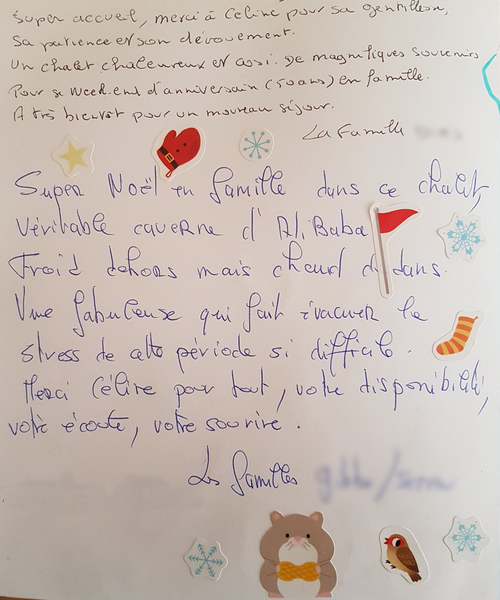 Super accueil, merci à Céline pour sa gentillesse,
Sa patience et son dévouement.
Un chalet chaleureux et cosi. De magnifiques souvenirs
Pour ce week-end d'anniversaire (50 ans) en famille.
A très bientôt pour un nouveau séjour.
La famille
Super Noël en famille dans ce chalet,
Véritable caverne d'AliBaba
Froid dehors mais chaud dedans.
Vue fabuleuse qui fait évacuer le
stress de cette période si difficile.
Merci Céline pour tout, votre disponibilité,
votre écoute, votre sourire.
Les familles